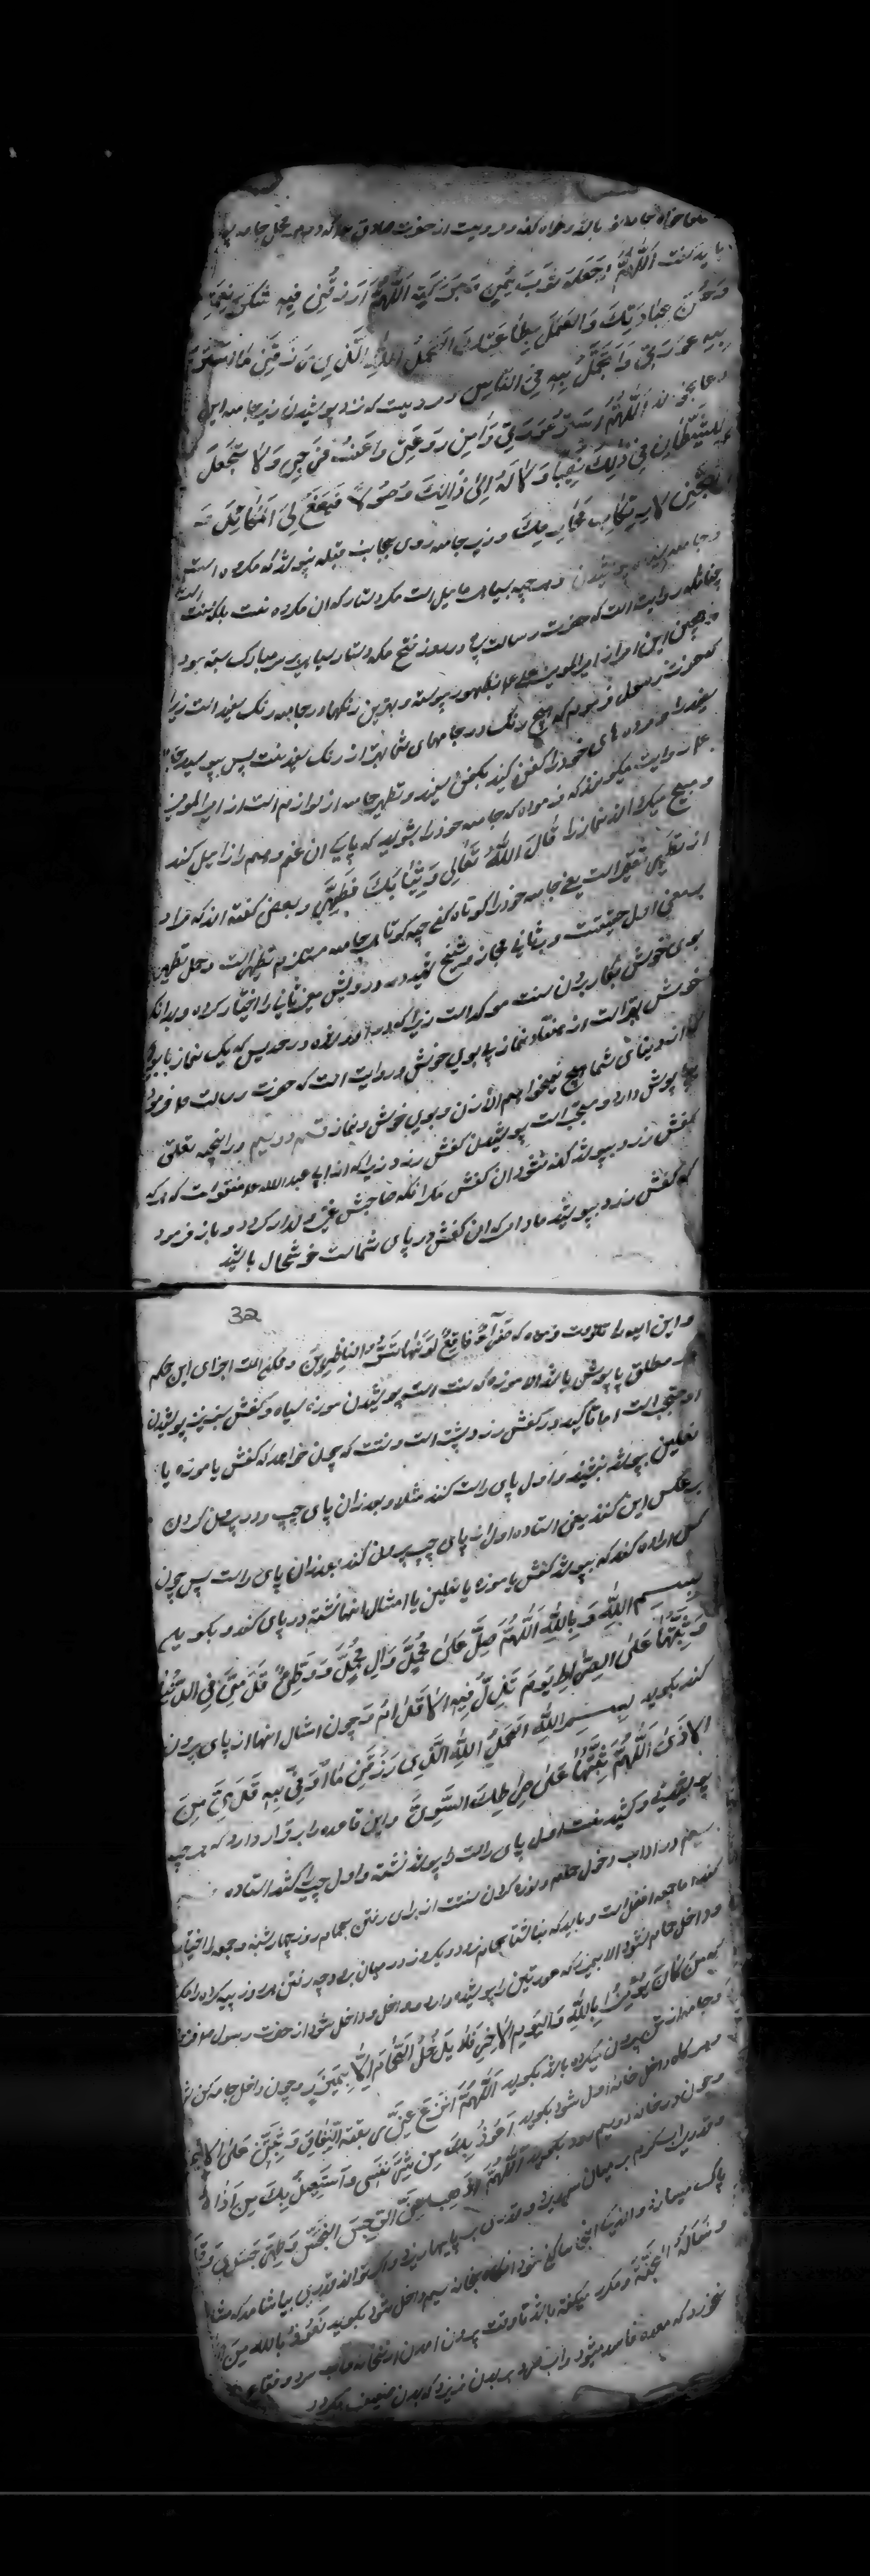 خواه جامه نو باشد و خواه کهنه و مرویست از حضرت صادق که در محل جامه
باید گفت اللهم اجعله ثوب یمن و برکة اللهم ارزقنی فیه شکر نعمتک
و حسن عبادتک و العمل بطاعتک الحمد لله الذی رزقنی ما استر
به عورتی و اتجمل به فی الناس و مرویست که نزد پوشیدن زیر جامه این
دعا بخواند اللهم استر عورتی و امن روعتی و اعف فرجی و لا تجعل
للشیطان فی ذلک نصیبا و لا له الی ذلک وصولا فیضع لی المکائد
لارتکاب محارمک و زیر جامه روی بجانب قبله نپوشد که مکروه است
و جامه سیاه پوشیدن و هر چه بسیاهی مایل است مگر دستار که ان مکروه نیست بلکه سنت است
چنانکه روایت است که حضرت رسالت در روز فتح مکه دستار سیاه بر سر مبارک بسته بود
و همچنین این امر از امیرالمومنین علی بظهور پیوسته و بهترین رنگها در جامه رنگ سفید است زیرا
که حضرت رسول فرمود که هیچ رنگ در جامهای شما بهتر از رنگ سفید نیست پس بپوشید جامه
سفید را و مرده های خود را کفن کنید بکفن سفید و تطهیر جامه از لوازم است از امیرالمومنین
روایت میکنند که فرموده که جامه خود را بشویید که پاکی ان غم و هم را زایل کند
و صحیح میگرداند نماز را قال الله تعالی و ثیابک فطهر و بعضی گفته اند که مراد
از تطهیر تقصیر است یعنی جامه خود را کوتاه کنی چه کوتاهی جامه مستلزم تطهیر است و حمل تطهیر
بر معنی اول حقیقت و بر ثانی مجاز و شیخ شهید در دروس معنی ثانی را اختیار کرده و بدانکه
بوی خوش بکار بردن سنت موکد است زیرا که وارد شده در حدیث که یک نماز با بوی
خوش بهتر است از هفتاد نماز بی بوی خوش و روایت است که حضرت رسالت فرمود
که از دنیای شما هیچ نمیخواهم الا زن و بوی خوش و نماز قسم دویم در انچه تعلق
بپاپوش دارد و مستحب است پوشیدن کفش زرد زیرا که از ابی عبدالله منقولست که هر که
کفش زرد بپوشد کهنه نشود ان کفش مگر انکه صاحبش غنی و مالدار گردد و باز فرمود
که کفش زرد بپوشید مادام که ان کفش در پای شماست خوشحال باشید
32
و این ایه را تلاوت فرموده که صفراء فاقع لونها تسر الناظرین و ممکن است اجرای این حکم
در مطلق پاپوش باشد الا موزه که سنت است پوشیدن موزه سیاه و کفش سفید پوشیدن
او مستحب است اما تاکید در کفش زرد بیشتر است و سنت که چون خواهد که کفش یا موزه یا
نعلین بپوشد بنشیند و اول پای راست کند مثلا و بعد ازان پای چپ و در بیرون کردن
بر عکس این کند یعنی استاده اول از پای چپ بیرون کند بعد ازان پای راست پس چون
کسی اراده کند که بپوشد کفش یا موزه یا نعلین یا امثال اینها نشسته در پای کند و بگوید
بسم الله و بالله اللهم صل علی محمد و ال محمد و وطئ قدمی فی الدنیا
و ثبتهما علی الصراط یوم تزل فیه الاقدام و چون امثال اینها از پای بیرون
کند بگوید بسم الله الحمد لله الذی رزقنی ما اوقی به قدمی من
الاذی اللهم ثبتهما علی صراطک السوی و این قاعده را بقرار دارد که هر چه
پوشیدنی و کشیدنست اول پای راست را پوشد نشسته و اول چپ را کشد استاده
سیم در اداب دخول حمام و نوره کردن سنت از برای رفتن بحمام روز چهارشنبه و جمعه را اختیار
کند اما جمعه افضل است و باید که ناشتا بحمام نرود و یک روز در میان برود چه رفتن هر روز
و داخل حمام نشود الا بمیزر که عورتین را پوشیده دارد و داخل شود از حضرت رسول
که من کان یؤمن بالله و الیوم الاخر فلا یدخل الحمام الا بمیزر و چون داخل جامه کن شود
و جامه از تن بیرون میکرده باشد بگوید اللهم انزع عنی ربقة النفاق و ثبتنی علی الایمان
و هر گاه داخل خانه اول شود بگوید اعوذ بک من شر نفسی و استعیذ بک من اذاه
و چون در خانه دویم رود بگوید اللهم اذهب عنی الرجس النجس و طهر جسدی و
و قدری اب گرم بر میان سر ریزد و قدری بر پایها ریزد و اگر تواند قدری بیاشامد که مثانه
پاک میسازد و اندک انجا ساکن شود انگاه بخانه سیم داخل شود بگوید نعوذ بالله من النار
و نسئله الجنة و مکرر میگفته باشد تا وقت بیرون امدن از خانه و اب سرد و فقاع
نخورد که معده فاسد میشود و اب سرد بر بدن نریزد که بدن ضعیف میگردد